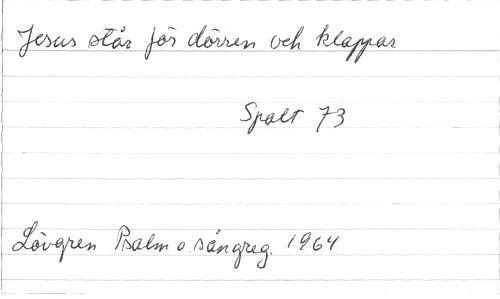 Jesus står för dörren och klappar
Spalt 73
Lövgren Psalm o. sångreg. 1964